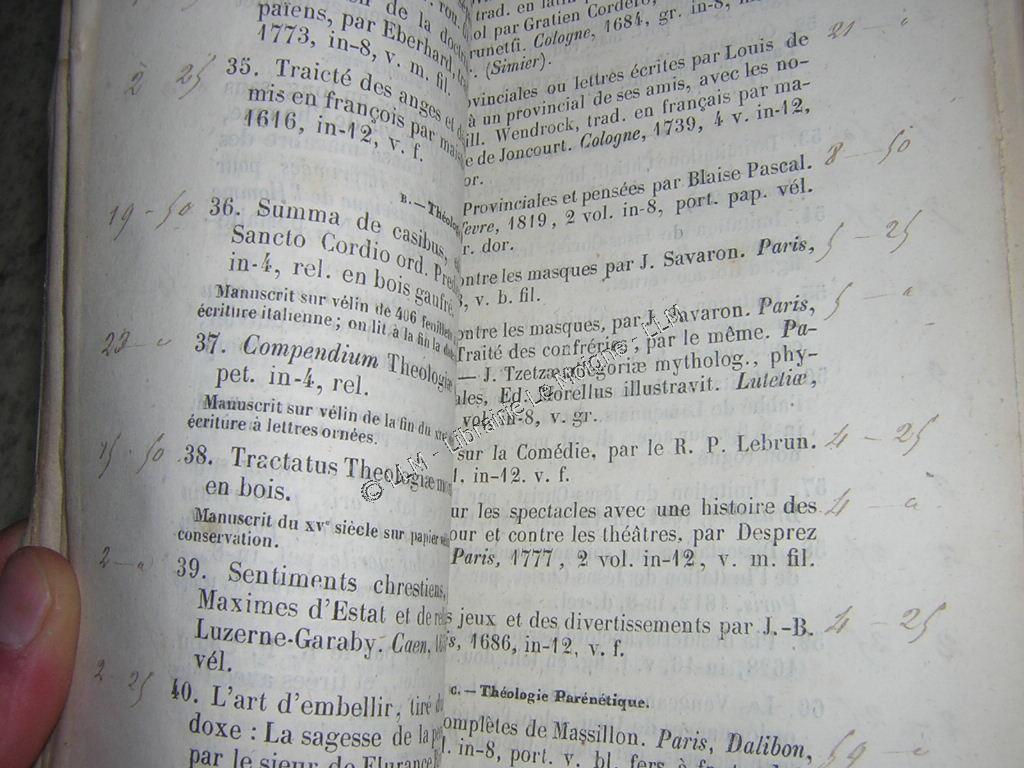 païens, par Eberhard,
1773, in-8, v. m. fil.
2 25
35. Traicté des anges et
mis en françois par
1616, in-12, v. f.
B. — Théolo
19 - 50
36. Summa de casibus,
Sancto Cordio ord. Pred
in-4, rel. en bois gaufré,
Manuscrit sur vélin de 406 feuillets
écriture italienne; on lit à la fin la
23 — "
37. Compendium Theologiæ
pet. in-4, rel.
Manuscrit sur vélin de la fin du
écriture à lettres ornées.
15 - 50
38. Tractatus Theologiæ
en bois.
Manuscrit du XVe siècle sur papier
conservation.
2 — "
39. Sentiments chrestiens,
Maximes d'Estat et de
Luzerne-Garaby. Caen,
vél.
2 - 25
40. L'art d'embellir, tiré
doxe : La sagesse de la
par le sieur de Flurance
trad. en latin
ol par Gratien Cordero,
runetti. Cologne, 1684, gr. in-8,
(Simier).
21 — "
ovinciales ou lettres écrites par Louis de
à un provincial de ses amis, avec les no-
ill. Wendrock, trad. en français par ma-
e de Joncourt. Cologne, 1739, 4 v. in-12,
or.
8 — 50
Provinciales et pensées par Blaise Pascal.
fevre, 1819, 2 vol. in-8, port. pap. vél.
r. dor.
5 — 25
ontre les masques par J. Savaron. Paris,
, v. b. fil.
5 — "
ontre les masques, par J. Savaron. Paris,
Traité des confréries, par le même. Pa-
— J. Tzetzæ allegoriæ mytholog., phy-
ales, Ed. Morellus illustravit. Lutetiæ,
vol. in-8, v. gr.
4 — 25
sur la Comédie, par le R. P. Lebrun.
1, in-12. v. f.
4 — "
ur les spectacles avec une histoire des
our et contre les théâtres, par Desprez
Paris, 1777, 2 vol in-12, v. m. fil.
4 — 25
s jeux et des divertissements par J.-B.
is, 1686, in-12, v. f.
C. — Théologie Parénétique.
omplètes de Massillon. Paris, Dalibon,
59 — "
l. in-8, port. v. bl. fers à
© LLM - Librairie Le Moigne - LLM